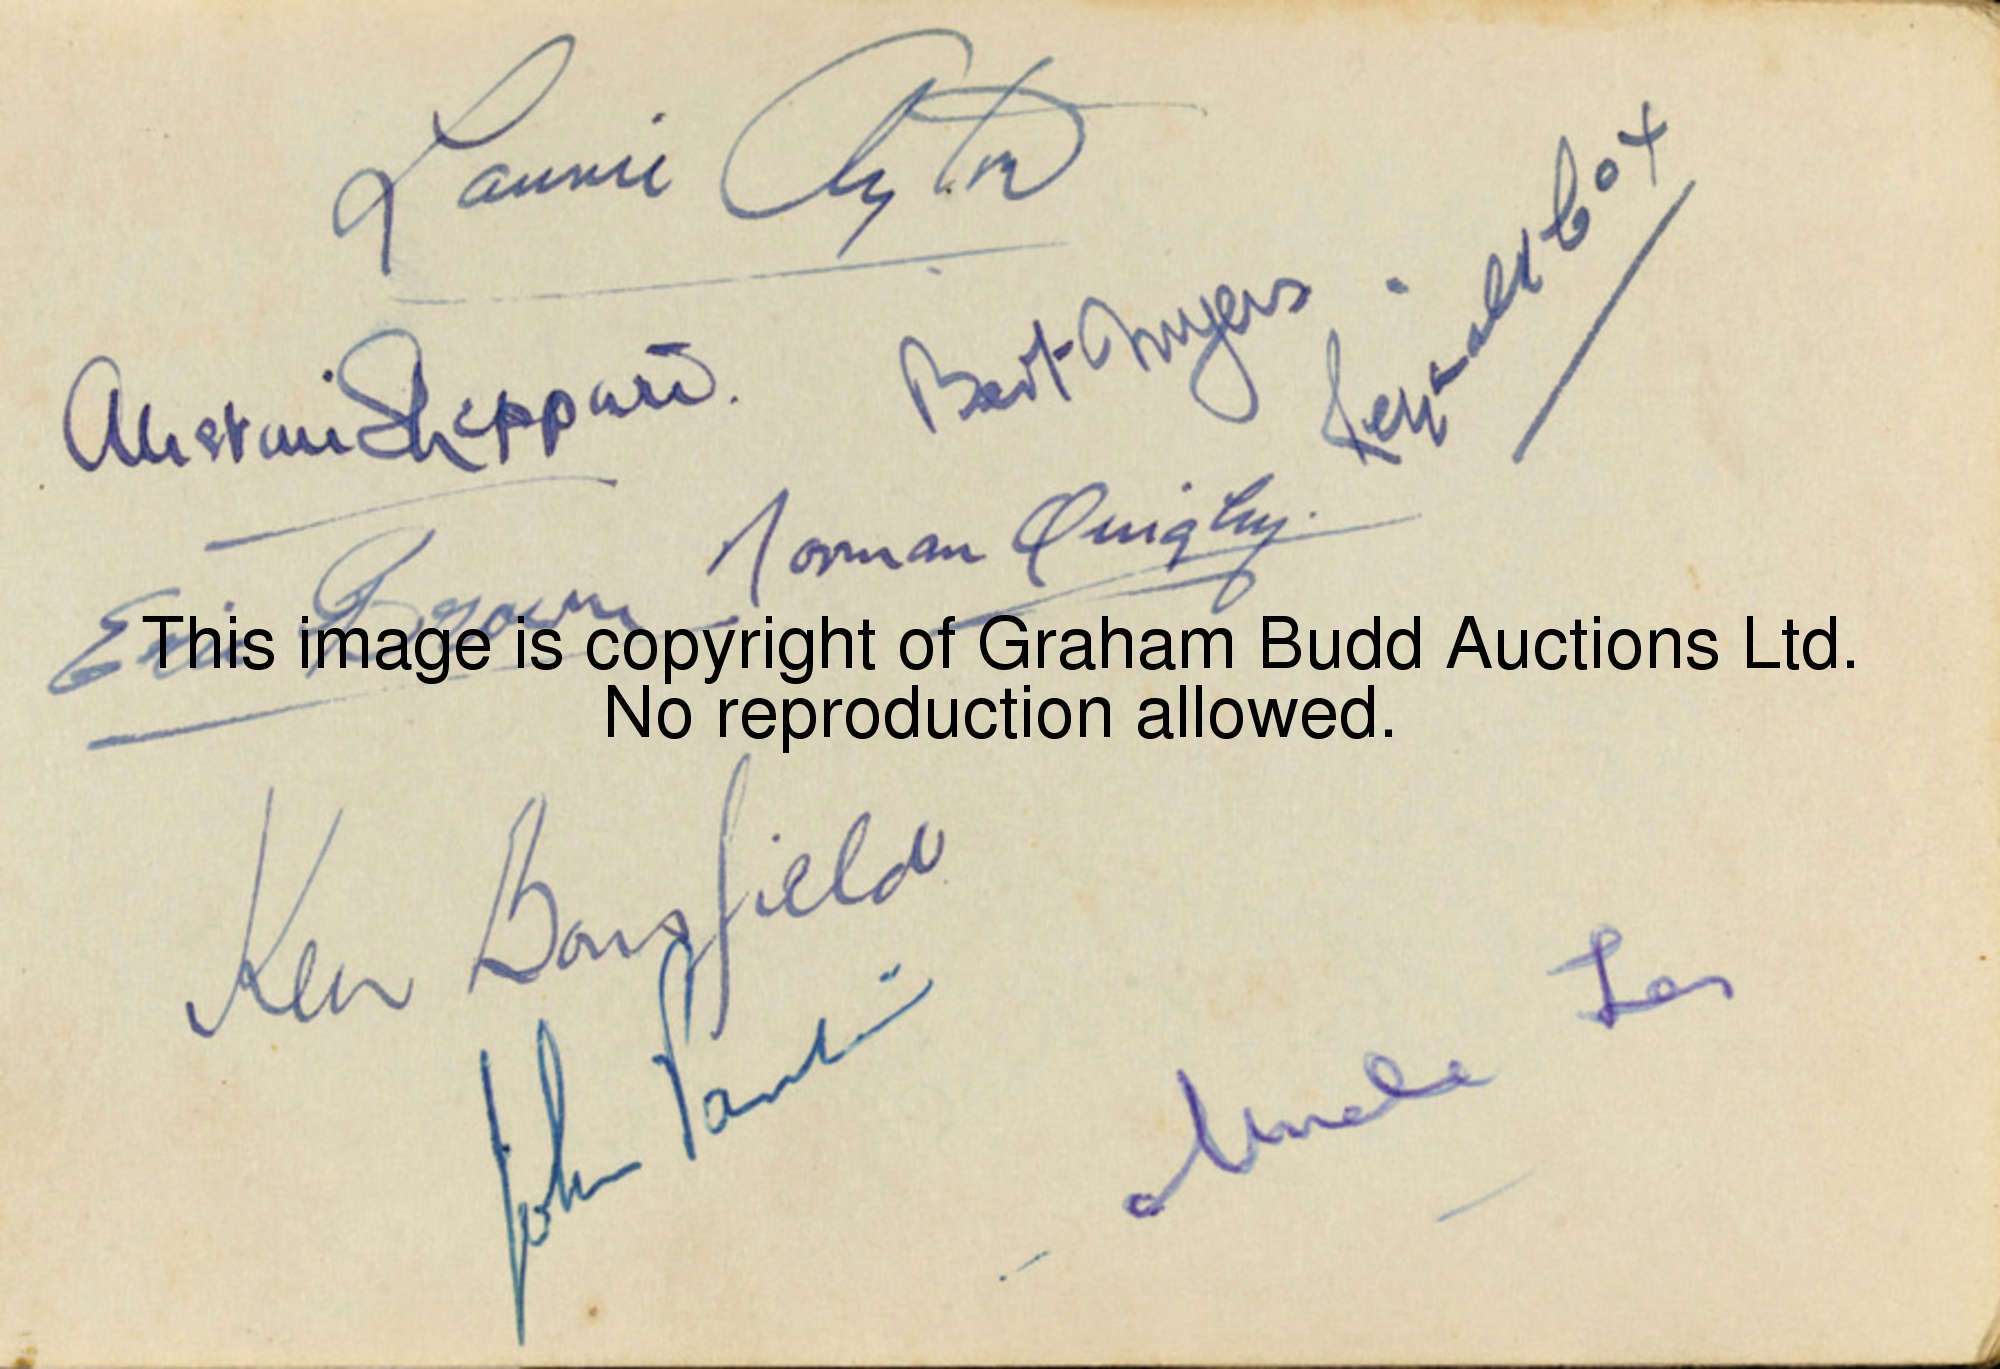 Lawrie
Reginald Cox
Bert Myers
Alistair Sheppard.
Norman Quigley.
Eric Brown
This image is copyright of Graham Budd Auctions Ltd.
No reproduction allowed.
Ken Bousfield
John
Uncle Les